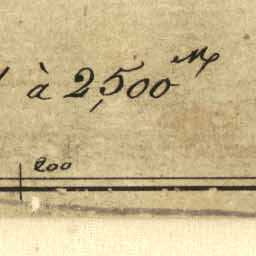 à 2,500 M
200